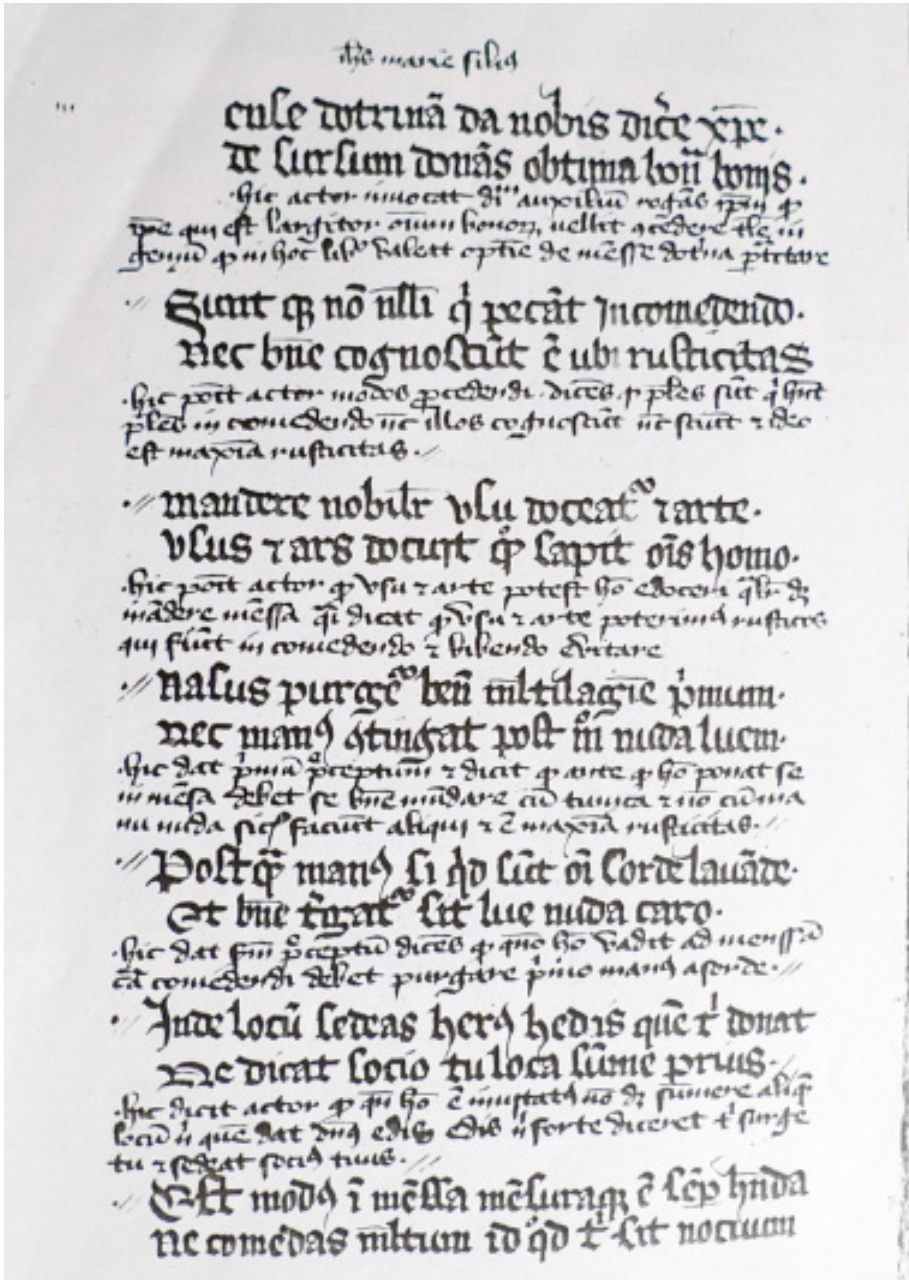 yhs marie filiꝰ
cuse dotrinā da nobis dic̄e xp̄e ·
de sursum donās obtima boīi bonis ·
·hic actor inuocat di'' auxiliū rogās ip̄m ꝙ
qui est largitor oīum bonoꝝ, uellit ꝯcedere in
ꝙ in hoc libº valeat optīe de mēsse dotīa
Sunt ꝗꝫ nō nlli q̇ pecāt Incomedendo·
Nec bn̄e cognoscūt ē ubi rusticitas
·hic pōit actor modos ꝓcedendi · dicēs ꝙ pl̄es sūt q̇ hn̄t
pl̄es in comedendo nc̄ illos cognoscūt nc̄ sciūt ⁊ ideo
est maxīa rusticitas ·
mandere nobilr̄ vsu doceat᷑ ⁊ arte ·
vsus ⁊ ars docuit qº sapit oīs homo·
·hic pōit actor ꝙ vsu ⁊ arte potest hō edoceri qlr̄ dꝫ
mādere mēssa q̄i dicat ꝙ vsu ⁊ arte poterimꝰ rusticos
qui fiūt in comedendo ⁊ bibendo euitare
nasus purgēt᷑ ben̄ mltilagīe p̓mum·
Nec manꝰ ꝯtingat post m̊ nuda lucm·
·hic dat p̓mū p̄ceptum ⁊ dicit ꝙ ante ꝙ hō ponat se
in mēsa debet se bn̄e mūdare cū tunica ⁊ nō cū ma
nu nuda sic faciūt aliqui ⁊ ē maxīa rusticitas·
Postꝙ̄ manꝰ si qd sūt oī sorde lauāde·
Et bn̄e t̓gat᷑ sit lue nuda caro·
·hic dat fm̄ p̄ceptū dicēs ꝙ qn̄o hō vadit ad menssā
cā comedendi debet purgare p̓mo manꝰ a sorde·
Inde locū sedeas herꝰ hedis quē t̓ donat
Ne dicat socio tu loca sūme prius·
·hic dicit actor ꝙ qn̄ hō ē inuitatꝰ nō dꝫ sumere aliq̄
locū n̓ quē dat dn̄ꝰ edis n̓ forte diceret t̓ surge
tu ⁊ sedeat sociꝰ tuus·
Est modꝰ ī mēssa mēsuraqꝫ ē sēp hn̄da
Ne comedas mltum id qd t̓ sit nociuum